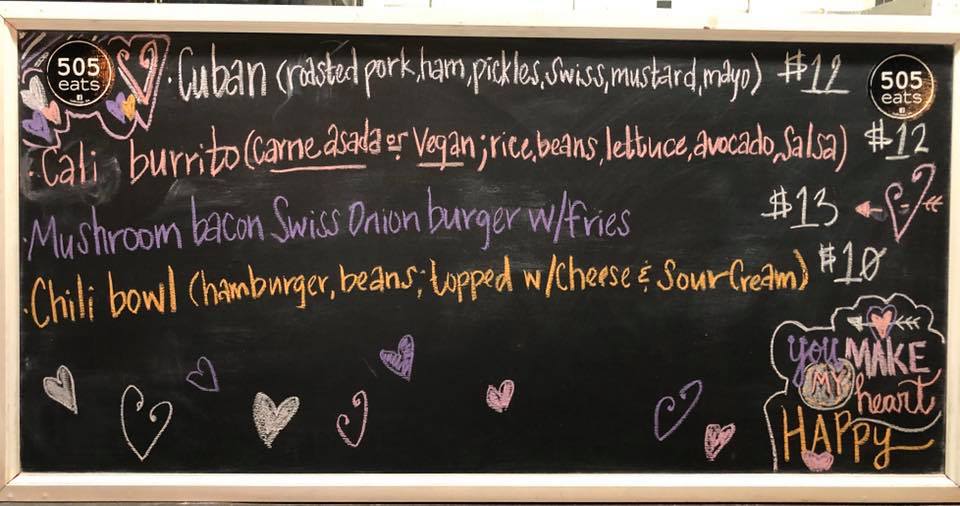 505
eats
· Cuban (roasted pork, ham, pickles, Swiss, mustard, mayo) $12
505
eats
· Cali burrito (Carne asada or Vegan; rice, beans, lettuce, avocado, Salsa) $12
· Mushroom bacon Swiss Onion burger w/fries $13
· Chili bowl (hamburger, beans; topped w/Cheese & Sour Cream) $10
you MAKE
MY heart
HAPpy